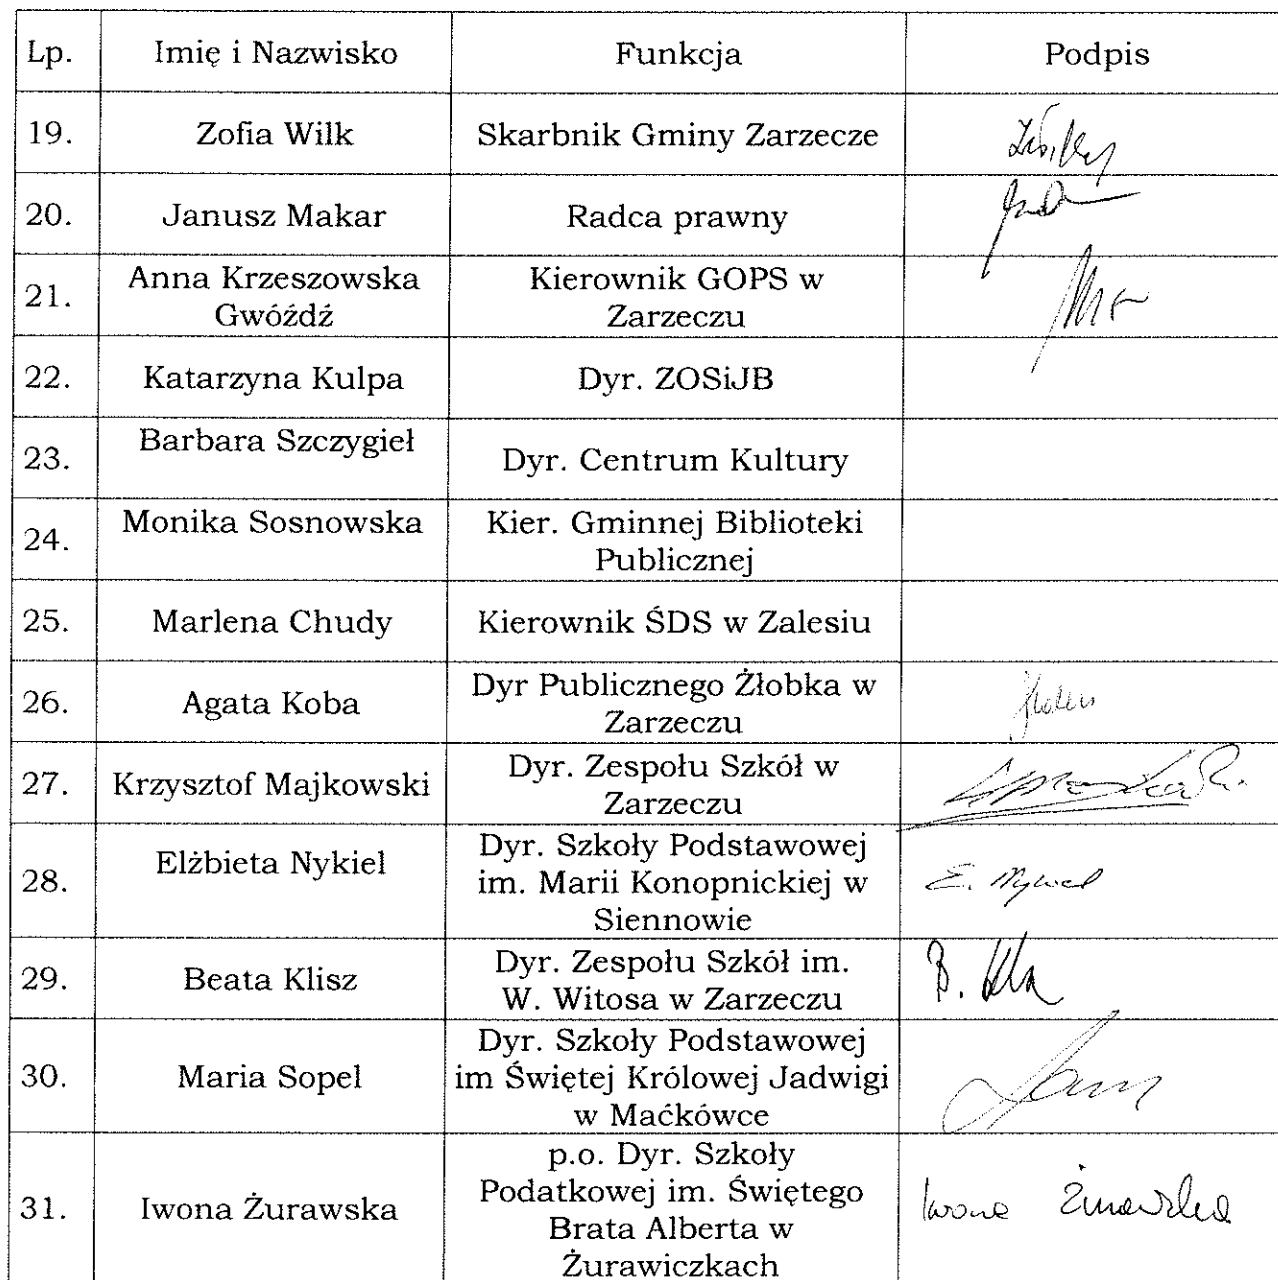 Lp. Imię i Nazwisko Funkcja Podpis
19. Zofia Wilk Skarbnik Gminy Zarzecze
20. Janusz Makar Radca prawny
21. Anna Krzeszowska Gwóźdź Kierownik GOPS w Zarzeczu
22. Katarzyna Kulpa Dyr. ZOSiJB
23. Barbara Szczygieł Dyr. Centrum Kultury
24. Monika Sosnowska Kier. Gminnej Biblioteki Publicznej
25. Marlena Chudy Kierownik ŚDS w Zalesiu
26. Agata Koba Dyr Publicznego Żłobka w Zarzeczu
27. Krzysztof Majkowski Dyr. Zespołu Szkół w Zarzeczu
28. Elżbieta Nykiel Dyr. Szkoły Podstawowej im. Marii Konopnickiej w Siennowie E. Nykiel
29. Beata Klisz Dyr. Zespołu Szkół im. W. Witosa w Zarzeczu B.
30. Maria Sopel Dyr. Szkoły Podstawowej im Świętej Królowej Jadwigi w Maćkówce
31. Iwona Żurawska p.o. Dyr. Szkoły Podatkowej im. Świętego Brata Alberta w Żurawiczkach Iwona Żurawska